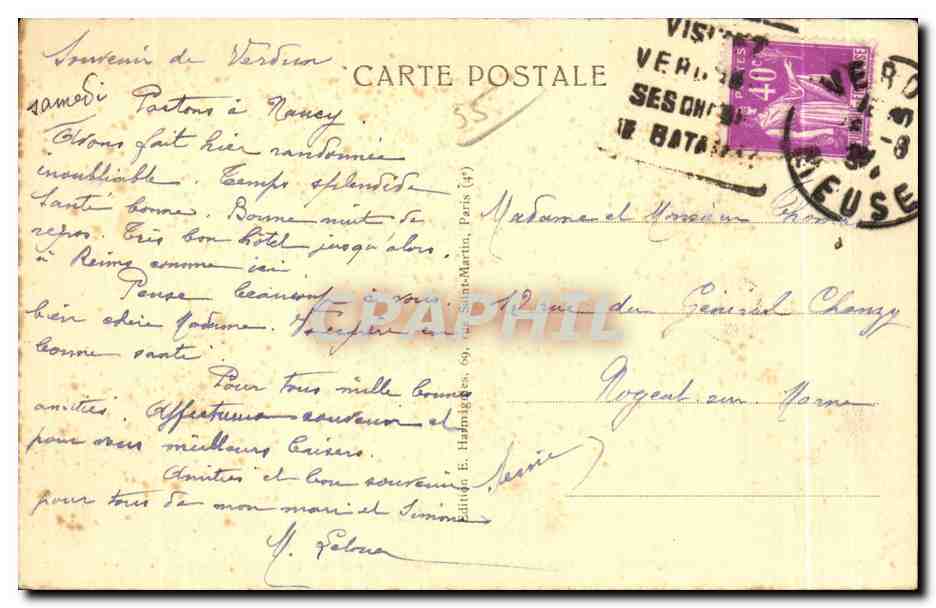 Souvenir de Verdun
CARTE POSTALE
samedi Partons à Nancy.
Avons fait hier randonnée
inoubliable. Temps splendide
Santé bonne. Bonne nuit de
repos. Très bon hôtel jusqu'alors.
à Reims comme ici
Pense beaucoup à vous
bien chère Madame. J'espère en
bonne santé.
Pour tous mille bonnes
amitiés. Affectueux souvenir et
pour vous meilleurs baisers.
Amitiés et bon souvenir
pour tous de mon mari et Simone
M.
55
Edition E. Harmignies, 69, rue Saint-Martin, Paris (4e)
VISITEZ
VERDUN
SES CH
DE BATAI
POSTES
40c
VERD
-8
MEUSE
Madame et Monsieur
12 rue du Général Chanzy
Nogent-sur-Marne
(Seine)
CPAPHIL